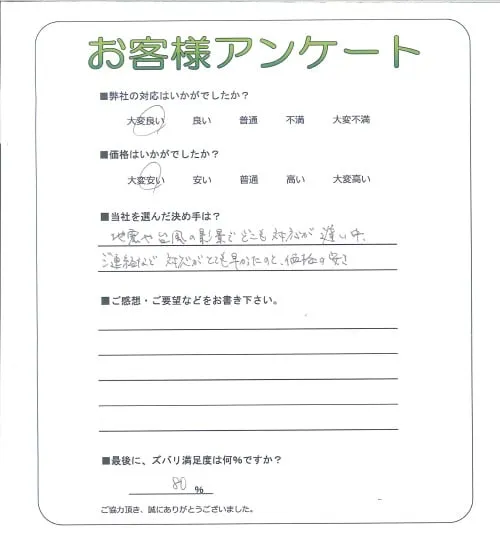 お客様アンケート
■弊社の対応はいかがでしたか？
大変良い 良い 普通 不満 大変不満
■価格はいかがでしたか？
大変安い 安い 普通 高い 大変高い
■当社を選んだ決め手は？
地震や台風の影響でどこも対応が遅い中、
連絡など対応がとても早かったのと、価格の安さ
■ご感想・ご要望などをお書き下さい。
■最後に、ズバリ満足度は何%ですか？
80 %
ご協力頂き、誠にありがとうございました。